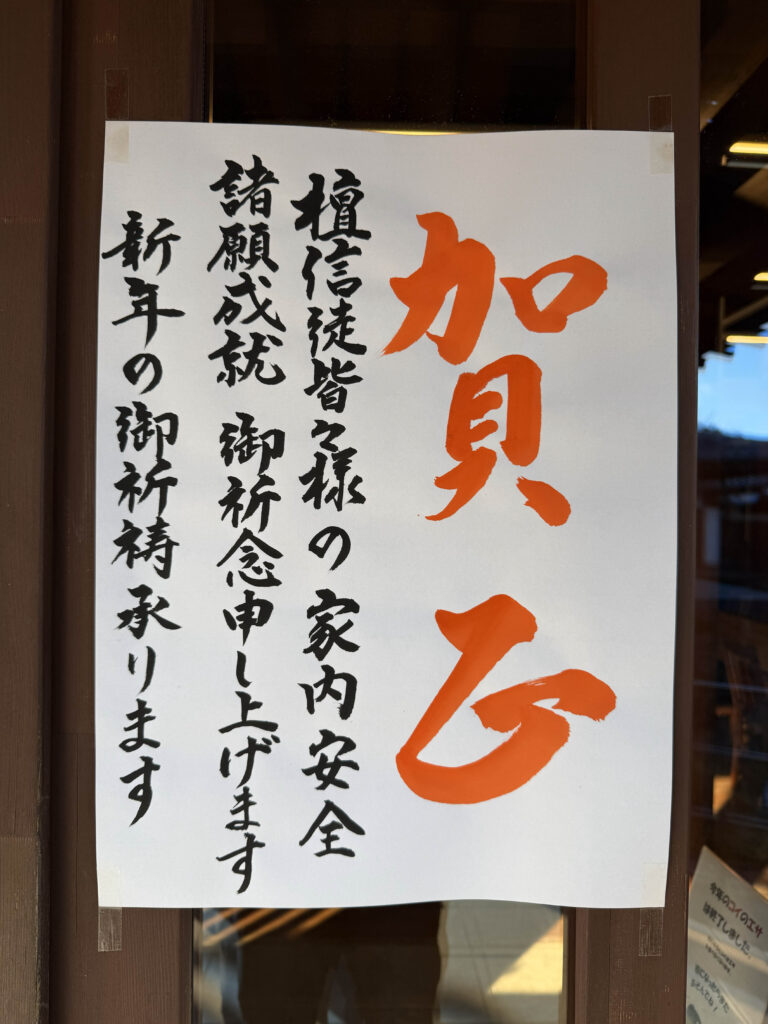 賀正
檀信徒皆々様の家内安全
諸願成就 御祈念申し上げます
新年の御祈祷承ります
今年のコイのエサ
は終了しました。